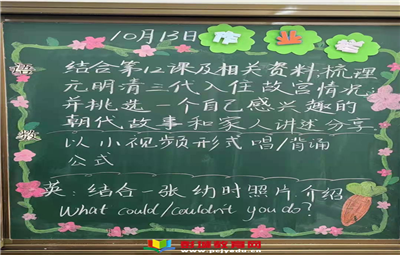 10月13日 作业
语 结合第12课及相关资料,梳理
元明清三代入住故宫情况,
并挑选一个自己感兴趣的
朝代故事和家人讲述分享.
数 以小视频形式唱/背诵
公式
英:结合一张幼时照片介绍
What could/couldn't you do?